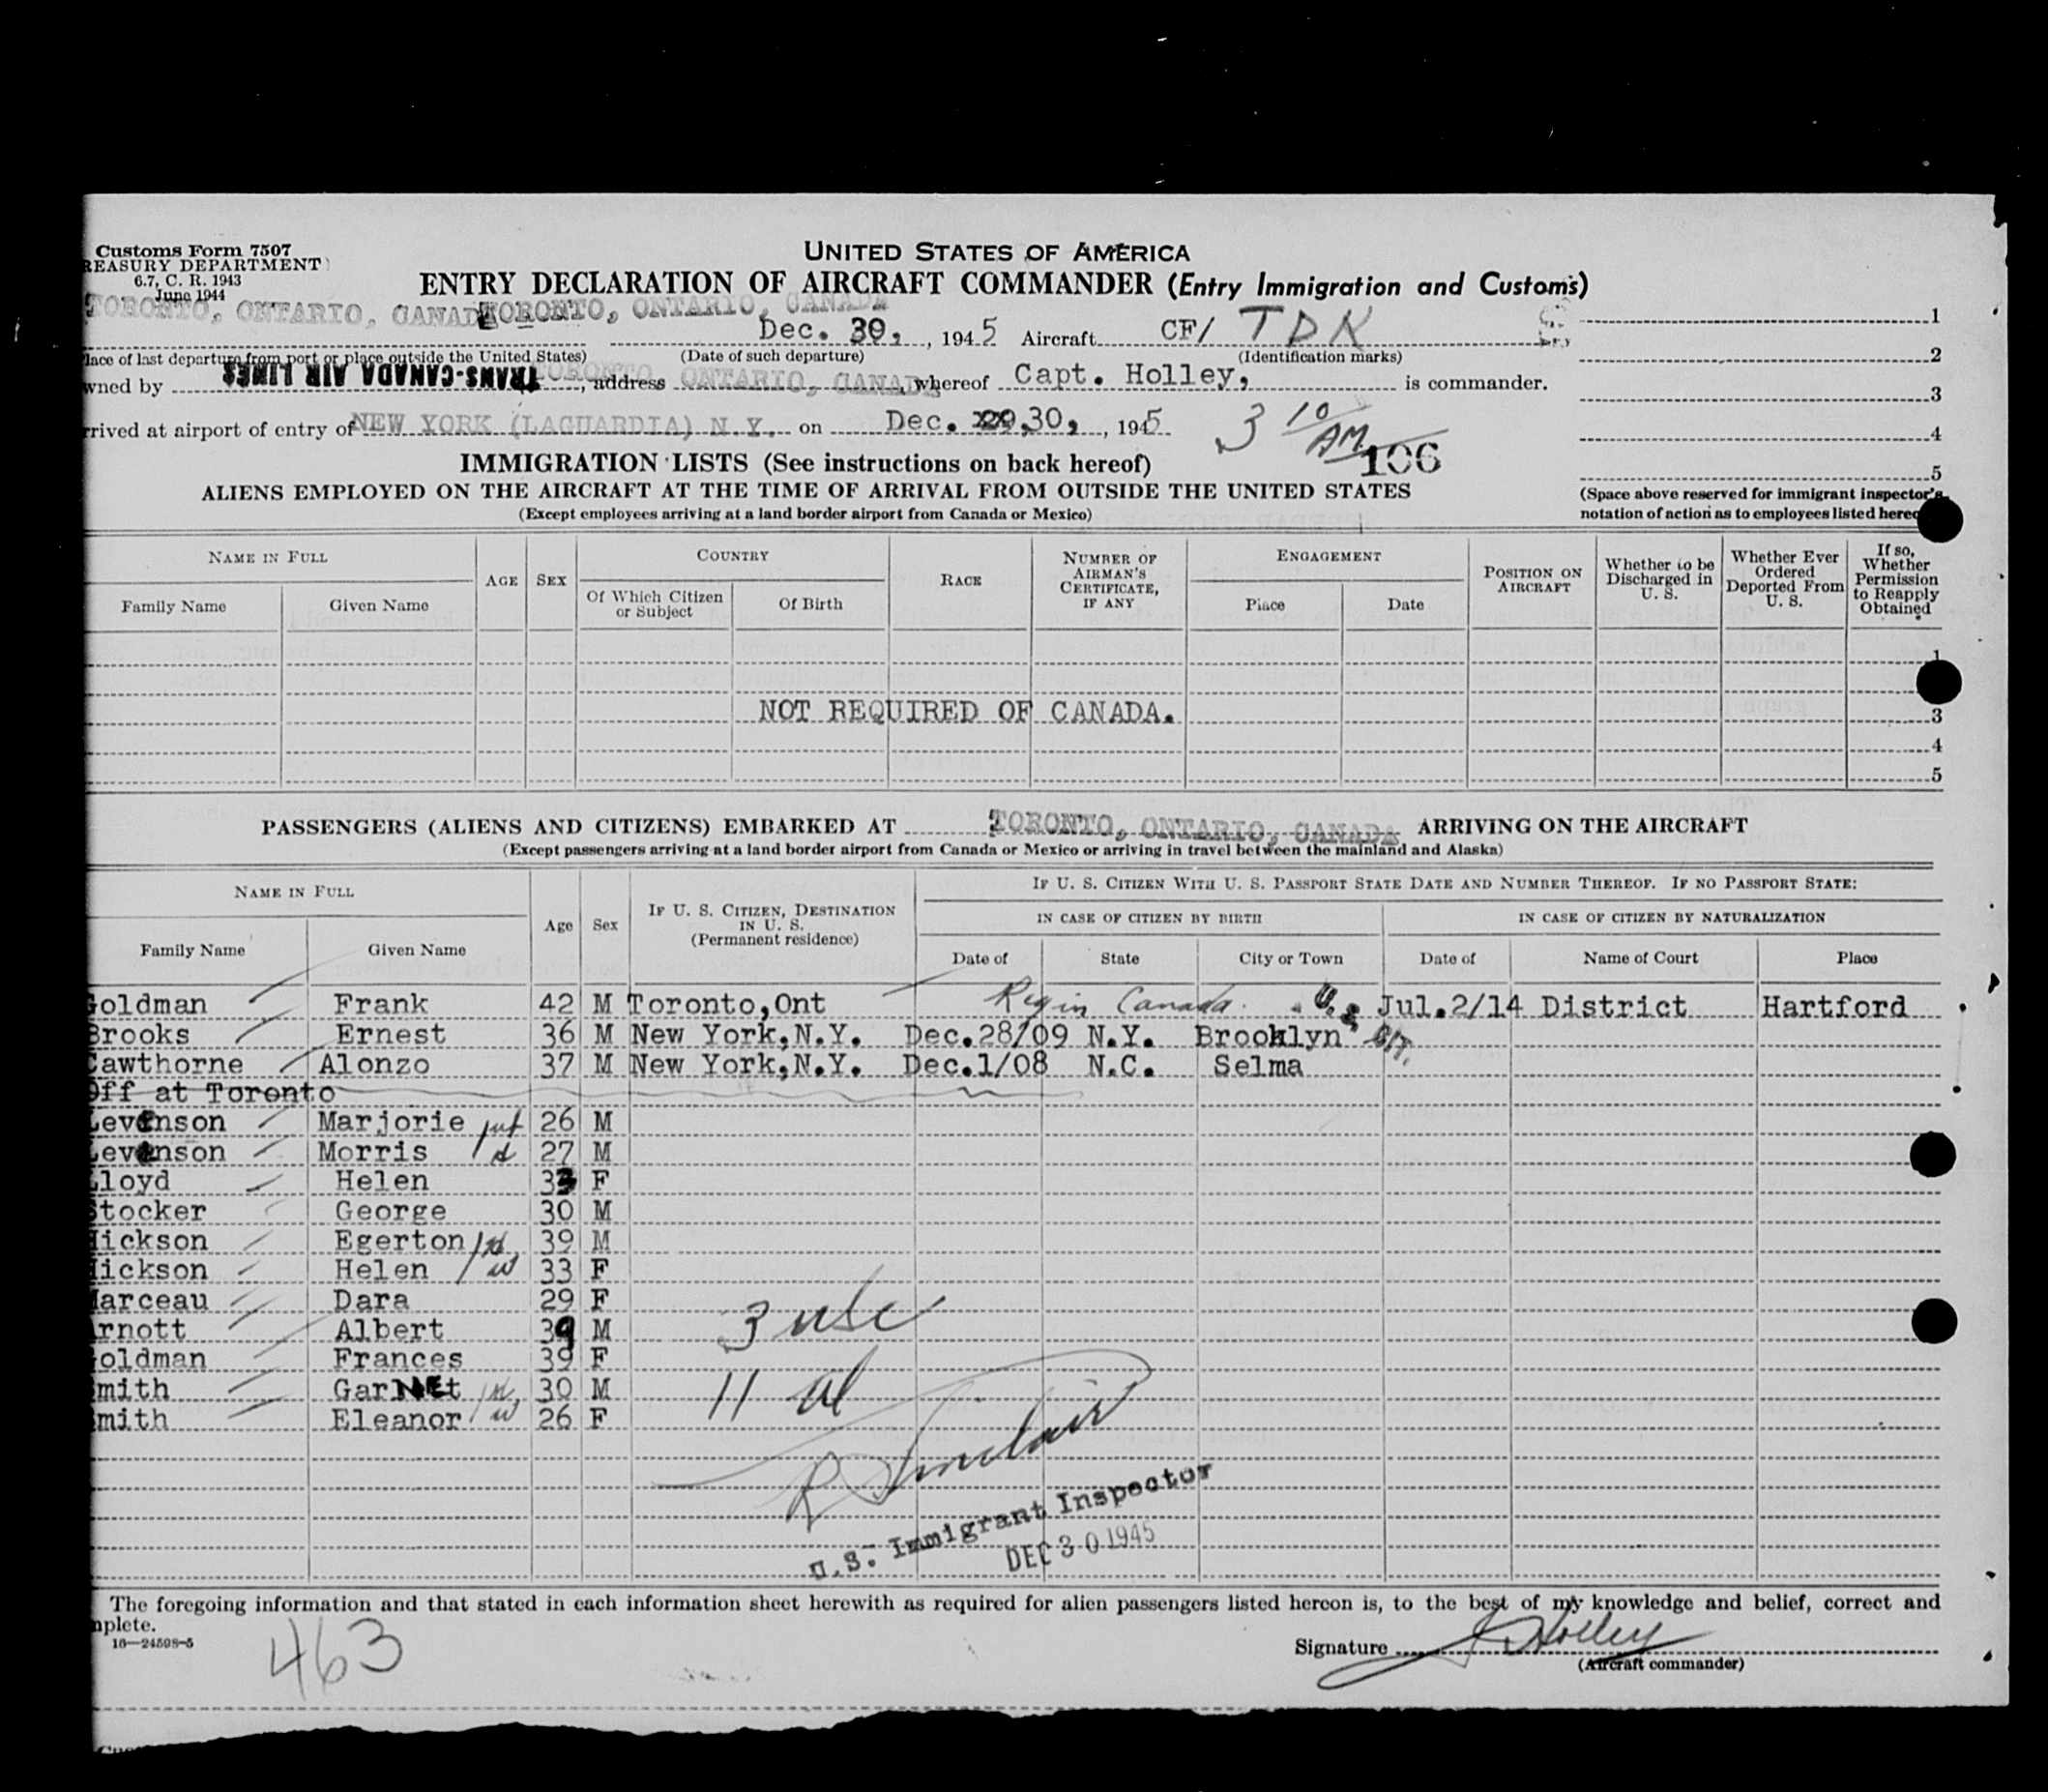 Customs Form 7507
REASURY DEPARTMENT
6.7, C. R. 1943
June 1944
UNITED STATES OF AMERICA
ENTRY DECLARATION OF AIRCRAFT COMMANDER (Entry Immigration and Customs)
TORONTO, ONTARIO, CANADA TORONTO, ONTARIO, CANADA
Dec. 30, , 1945 Aircraft CF/ TDK
lace of last departure from port or place outside the United States) (Date of such departure) (Identification marks)
wned by TRANS-CANADA AIR LINES TORONTO, address ONTARIO, CANADA whereof Capt. Holley, is commander.
rrived at airport of entry of NEW YORK (LAGUARDIA) N.Y. on Dec. 30, , 1945 3 10 AM
106
1
2
3
4
5
(Space above reserved for immigrant inspector's
notation of action as to employees listed hereo
IMMIGRATION LISTS (See instructions on back hereof)
ALIENS EMPLOYED ON THE AIRCRAFT AT THE TIME OF ARRIVAL FROM OUTSIDE THE UNITED STATES
(Except employees arriving at a land border airport from Canada or Mexico)
NAME IN FULL
Family Name Given Name
AGE
SEX
COUNTRY
Of Which Citizen or Subject
Of Birth
RACE
NUMBER OF AIRMAN'S CERTIFICATE, IF ANY
ENGAGEMENT
Place Date
POSITION ON AIRCRAFT
Whether to be Discharged in U. S.
Whether Ever Ordered Deported From U. S.
If so, Whether Permission to Reapply Obtained
1
NOT REQUIRED OF CANADA. 3
4
5
PASSENGERS (ALIENS AND CITIZENS) EMBARKED AT TORONTO, ONTARIO, CANADA ARRIVING ON THE AIRCRAFT
(Except passengers arriving at a land border airport from Canada or Mexico or arriving in travel between the mainland and Alaska)
NAME IN FULL
Family Name Given Name
Age
Sex
IF U. S. CITIZEN, DESTINATION IN U. S.
(Permanent residence)
IF U. S. CITIZEN WITH U. S. PASSPORT STATE DATE AND NUMBER THEREOF. IF NO PASSPORT STATE:
IN CASE OF CITIZEN BY BIRTH IN CASE OF CITIZEN BY NATURALIZATION
Date of State City or Town Date of Name of Court Place
Goldman Frank 42 M Toronto,Ont Canada. U.S. Cit. Jul.2/14 District Hartford
Brooks Ernest 36 M New York,N.Y. Dec.28/09 N.Y. Brooklyn
Cawthorne Alonzo 37 M New York,N.Y. Dec.1/08 N.C. Selma
Off at Toronto
Levenson Marjorie 26 M
Levenson Morris 27 M
Lloyd Helen 33 F
Stocker George 30 M
Hickson Egerton 39 M
Hickson Helen 33 F
Marceau Dara 29 F
Arnott Albert 39 M
oldman Frances 39 F
mith GarNEt 30 M
mith Eleanor 26 F
3 usc
11 al
R Sinclair
U.S. Immigrant Inspector
DEC 30 1945
The foregoing information and that stated in each information sheet herewith as required for alien passengers listed hereon is, to the best of my knowledge and belief, correct and
mplete.
16—24598-5
463
Signature Holley
(Aircraft commander)